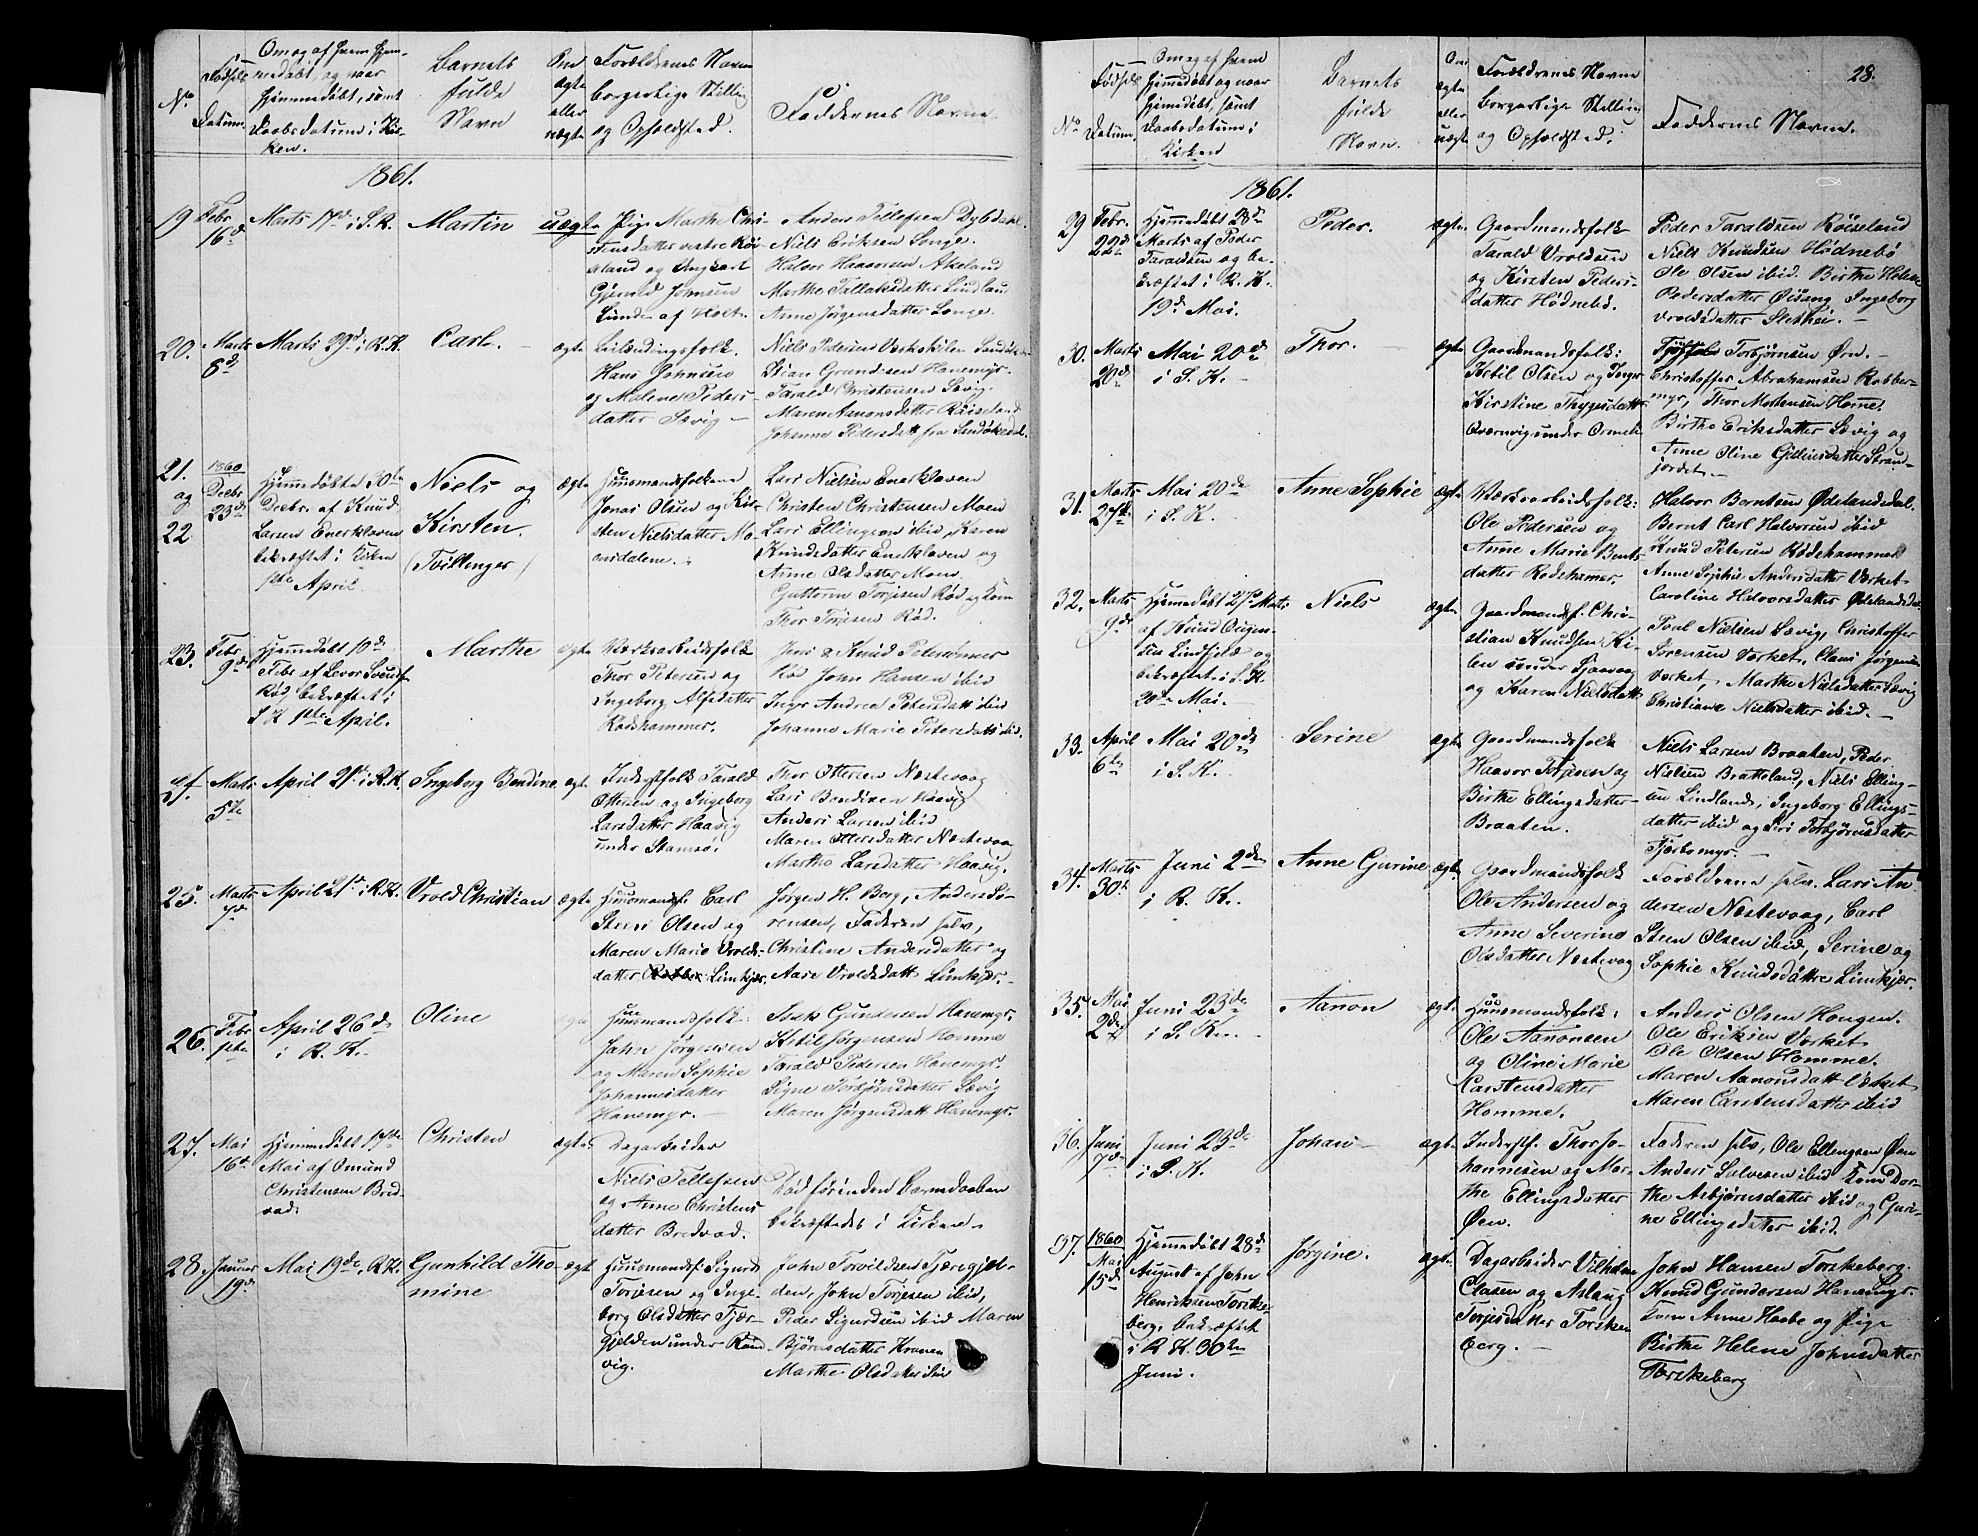 No
Fødsels
Datum.
Om og af hvem hjem-
medøbt, og naar
hjemmedøbt, samt
Daabsdatum i Kir-
ken.
Barnets
fulde
Navn
Om
ægte
eller
uægte
Forældrenes Navne
borgerlige Stilling
og Opholdsted.
Faddernes Navne.
1861.
19 Febr. 16d
Marts 17d i S. K.
Martin
uægte
Pige Marthe Chri-
stensdatter vestre Røi-
seland og Ungkarl
Gjeruld Johnsen
Lunden af Holt.
Anders Tellefsen Dybdahl
Niels Eriksen Songe.
Halvor Haavorsen Akeland
Marthe Tallaksdatter Lindland
Anne Jørgensdatter Songe.
20. Marts 6d
Marts 29d i R. K.
Carl.
ægte
Hans Johnsen
og Malene Peders-
datter Sævig
Niels Pedersen
Stian Grundesen Hanemyr.
Tarald Christensen Sævig.
Maren Aanonsdatter Røiseland
Johanne Pedersdatt fra
21. og 22
1860 Decbr. 23d
Hjemmedøbte 30te
Decbr. af Knud
Larsen Enerkloven
bekræftet i Kirken
1ste April
Niels og
Kirsten.
(Tvillinger)
ægte
Huusmandsfolkene
Jonas Olsen og Kir-
sten Nielsdatter Mo-
ensdalene.
Lars Nielsen Enerkloven
Christen Christensen Moen
Lars Ellingsen ibid, Karen
Knudsdatter Enerkloven og
Anne Olsdatter Moen
Guttorm Torjesen Rød og Kone
Thor Torjesen Rød.
23. Febr. 9d
Hjemmedøbt 10d
Febr af
Rød bekræftet i
S K 1ste April.
Marthe
ægte
Værksarbeidsfolk
Thor Petersen og
Ingeborg Alfsdatter
Rødshammer.
Jens & Knud Petersønner
Rød John Hansen ibid
Inger Andrea Petersdatt ibid
Johanne Marie Petersdatt ibid.
24. Marts 5te
April 21st i R. K.
Ingeborg Bendine
ægte
Inderstfolk Tarald
Ottersen og Ingeborg
Larsdatter Haavig
under Stamsø.
Thor Ottersen Næstevaag
Lars Bendixen Haavig
Anders Larsen ibid
Maren Ottersdatter Næstevaag
Marthe Larsdatter Haavig.
25. Marts 7d
April 21st i R. K.
Vrold Christian
ægte
Huusmandsf. Carl
Steen Olsen og
Maren Marie Vrolds-
datter Limkjær.
Jørgen H. Borg, Anders Sø-
rensen, Faderen selv,
Christine Andersdatter og
Aase Vroldsdatt Limkjær.
26. Febr. 1ste
April 26d
i R. K.
Oline
ægte
Huusmandsfolk:
John Jørgensen
og Maren Sophie
Johannesdatter
Hanemyr.
Isak Gundersen Hanemyr.
Ketil Jørgensen Homme
Tarald Pedersen Hanemyr.
Signe Torbjørnsdatter Sævig
Maren Jørgensdatt Hanemyr.
27. Mai 16d
Hjemmedøbt 17de
Mai af Omund
Christensen Bred-
vad.
Christen
ægte
Dagarbeider
Niels Tellefsen
og Anne Christens-
datter Bredvad.
Død førinden Barnedaaben
bekræftedes i Kirken.
28 Januar 19d
Mai 19de, R. K.
Gunhild Tho-
mine
ægte
Huusmandsf: Sigurd
Torjesen og Inge-
borg Olsdatter Tjær-
gjelden under Rønd-
vig.
John Torvildsen Tjæregjel-
den, John Torjesen ibid,
Peder Sigurdsen ibid Maren
Bjørnsdatter Kronen
Marthe Olsdatter ibid
28.
No
Fødsels
Datum.
Om og af hvem
hjemmedøbt og naar
hjemmedøbt, samt
Daabsdatum i
Kirken
Barnets
fulde
Navn.
Om
ægte
eller
uægte
Forældrenes Navne
borgerlige Stilling
og Opholdsted.
Faddernes Navne.
1861.
29 Febr. 22d
Hjemmedøbt 23de
Marts af Peder
Taraldsen og be-
kræftet i R. K.
19d Mai.
Peder.
ægte.
Gaardmandsfolk
Tarald Vroldsen
og Kirsten Peders-
datter Hødnebø.
Peder Taraldsen Røiseland
Niels Knudsen Hødnebø
Ole Olsen ibid. Birthe Helene
Pedersdatter Øisang Ingeborg
Vroldsdatter Slethei.
30. Marts 20d
Mai 20de
i S. K.
Thor.
ægte
Gaardmandsfolk:
Kjetil Olsen og Inger
Kirstine Thygesdatter
Torbjørnsen Ørn.
Christoffer Abrahamsen Rabber-
myr, Thor Mortensen Homme.
Birthe Eriksdatter Sævig og
Anne Oline
31. Marts 27d
Mai 20de
i S. K.
Anne Sophie
ægte
Værksarbeidsfolk:
Ole Pedersen og
Anne Marie Bernts-
datter Rødshamer.
Halvor Berntsen Ødelandsdal.
Bernt Carl Halvorsen ibid
Knud Petersen Rødshammer
Anne Sophie Andersdatter Værket
Caroline Halvorsdatter Ødelandsdal
32. Marts 9d
Hjemmedøbt 27de Marts
af Knud
bekræftet i S. K.
20de Mai.
Niels
ægte
Gaardmandsf. Chri-
stian Knudsen Ki-
len
og Karen Nielsdatt
Poul Nielsen Sævig, Christoffer
Sørensen Værket, Claus Jørgensen
Værket, Marthe Nielsdatter Sævig
Christiane Nielsdatter ibid.
33. April 6te
Mai 20de
i S. K.
Serine
ægte
Gaardmandsfolk
Haavor Torjesen og
Birthe Ellingsdatter
Braaten.
Niels Larsen Braaten, Peder
Nielsen Bratteland, Niels Elling-
sen Lindland, Ingeborg Ellings-
datter ibid og Siri Torbjørnsdatter
34. Marts 30t
Juni 2den
i R. K.
Anne Gurine
ægte
Gaardmandsfolk
Ole Andersen og
Anne Severine
Olsdatter Næstevaag
Forældrene selv. Lars An-
dersen Næstevaag, Carl
Steen Olsen ibid, Serine og
Sophie Knudsdøttre Limkjær.
35. Mai 2de
Juni 23de
i S. K.
Aanon
ægte
Huusmandsfolk:
Ole Aanonsen
og Oline Marie
Carstensdatter
Homme.
Anders Olsen Hougen.
Ole Eriksen Værket
Ole Olsen Homme.
Maren Aanonsdatt Værket
Maren Carstensdatter ibid
36. Juni 7d
Juni 23de
i S. K.
Johan
ægte
Inderstf. Thor Jo-
hannesen og Mar-
the Ellingsdatter
Øen.
Faderen selv, Ole Ellingsen Øen
Anders Salvesen ibid Kone Dor-
the Asbjørnsdatter ibid og Guri-
ne Ellingsdatter ibid.
37. 1860 Mai 15d
Hjemmedøbt 28de
August af John
Henriksen Torske-
berg, bekræftet
i R. K. 30te
Juni.
Jørgine.
ægte.
Dagarbeider Vilhelm
Clasen og Aslaug
Torjesdatter Torske-
berg.
John Hansen Torskeberg.
Knud Gundersen Hanemyr
Kone Anne Haabe og Pige
Birthe Helene Johnsdatter
Torskeberg